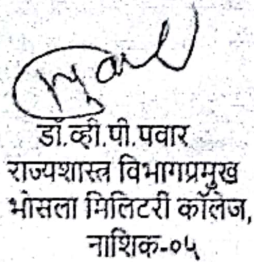 डॉ.व्ही.पी.पवार
राज्यशास्त्र विभागप्रमुख
भोसला मिलिटरी कॉलेज,
नाशिक-०५